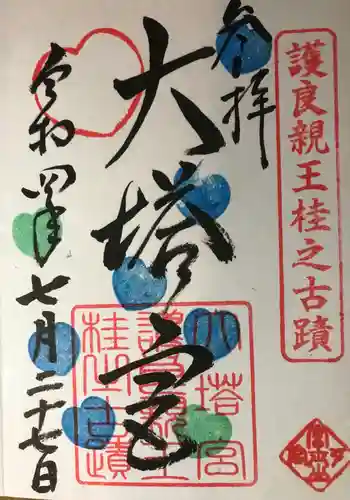 護良親王桂之古蹟
参拝
大塔宮
大塔宮
護良親王
桂之古蹟
令和四年七月二十七日